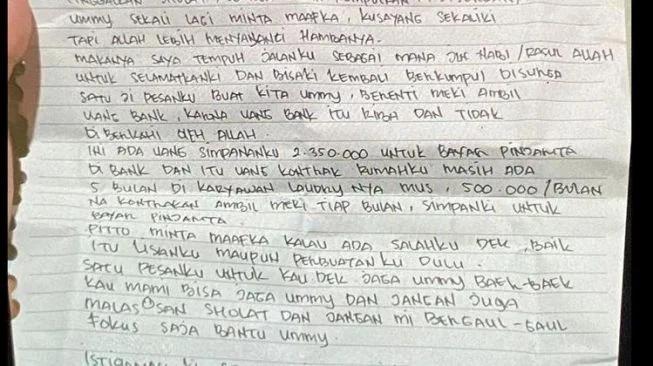 UMMY SEKALI LAGI MINTA MAAFKA, KUSAYANG SEKALIKI
TAPI ALLAH LEBIH MENYAYANGI HAMBANYA.
MAKANYA SAYA TEMPUH JALANKU SEBAGAI MANA JLK NABI / RASUL ALLAH
UNTUK SELAMATKANKI DAN BISAKI KEMBALI BERKUMPUL DISURGA
SATU JI PESANKU BUAT KITA UMMY, BERENTI MEKI AMBIL
UANG BANK, KARENA UANG BANK ITU RIBA DAN TIDAK
DI BERKAHI OLEH ALLAH.
INI ADA UANG SIMPANANKU 2.350.000 UNTUK BAYAR PINJAMTA
DI BANK DAN ITU UANG KONTRAK RUMAHKU MASIH ADA
5 BULAN DI KARYAWAN LAUDRY NYA MUS, 500.000/BULAN
NA KONTRAKAN AMBIL MEKI TIAP BULAN, SIMPANKI UNTUK
BAYAR PINJAMTA
PITTO MINTA MAAFKA KALAU ADA SALAHKU DEK, BAIK
ITU LISANKU MAUPUN PERBUATANKU DULU.
SATU PESANKU UNTUK KAU DEK JAGA UMMY BAEK-BAEK
KAU MAMI BISA JAGA UMMY DAN JANGAN JUGA
MALAS@SAN SHOLAT DAN JANGAN MI BERGAUL-GAUL
FOKUS SAJA BANTU UMMY.